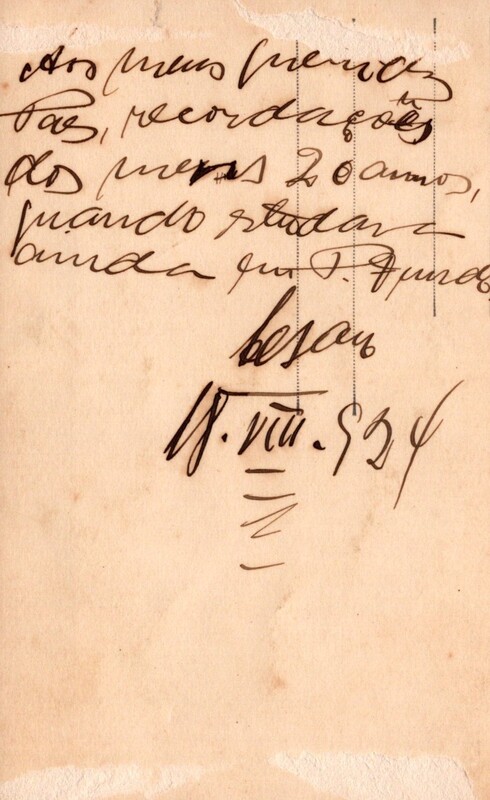 Aos meus queridos
Paes, recordações
dos meus 20 annos,
quando estudava
ainda em P. Fundo
Cesar
18. VIII. 924